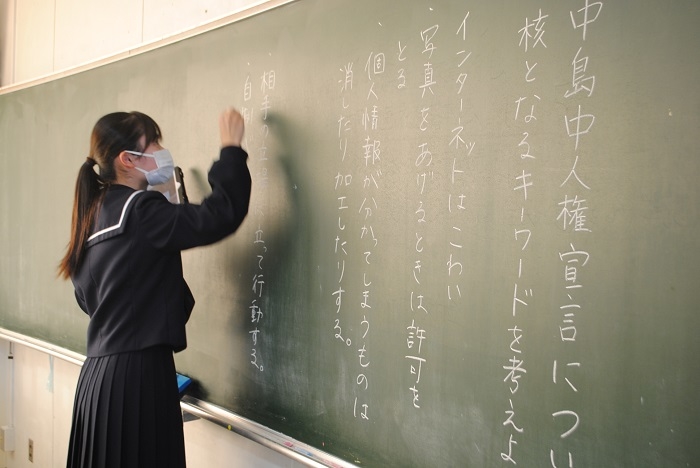 中島中人権宣言につい
核となるキーワードを考えよ
インターネットはこわい
・写真をあげるときは許可を
とる
・個人情報が分かってしまうものは
消したり加工したりする。
・相手の立 立って行動する。
・自